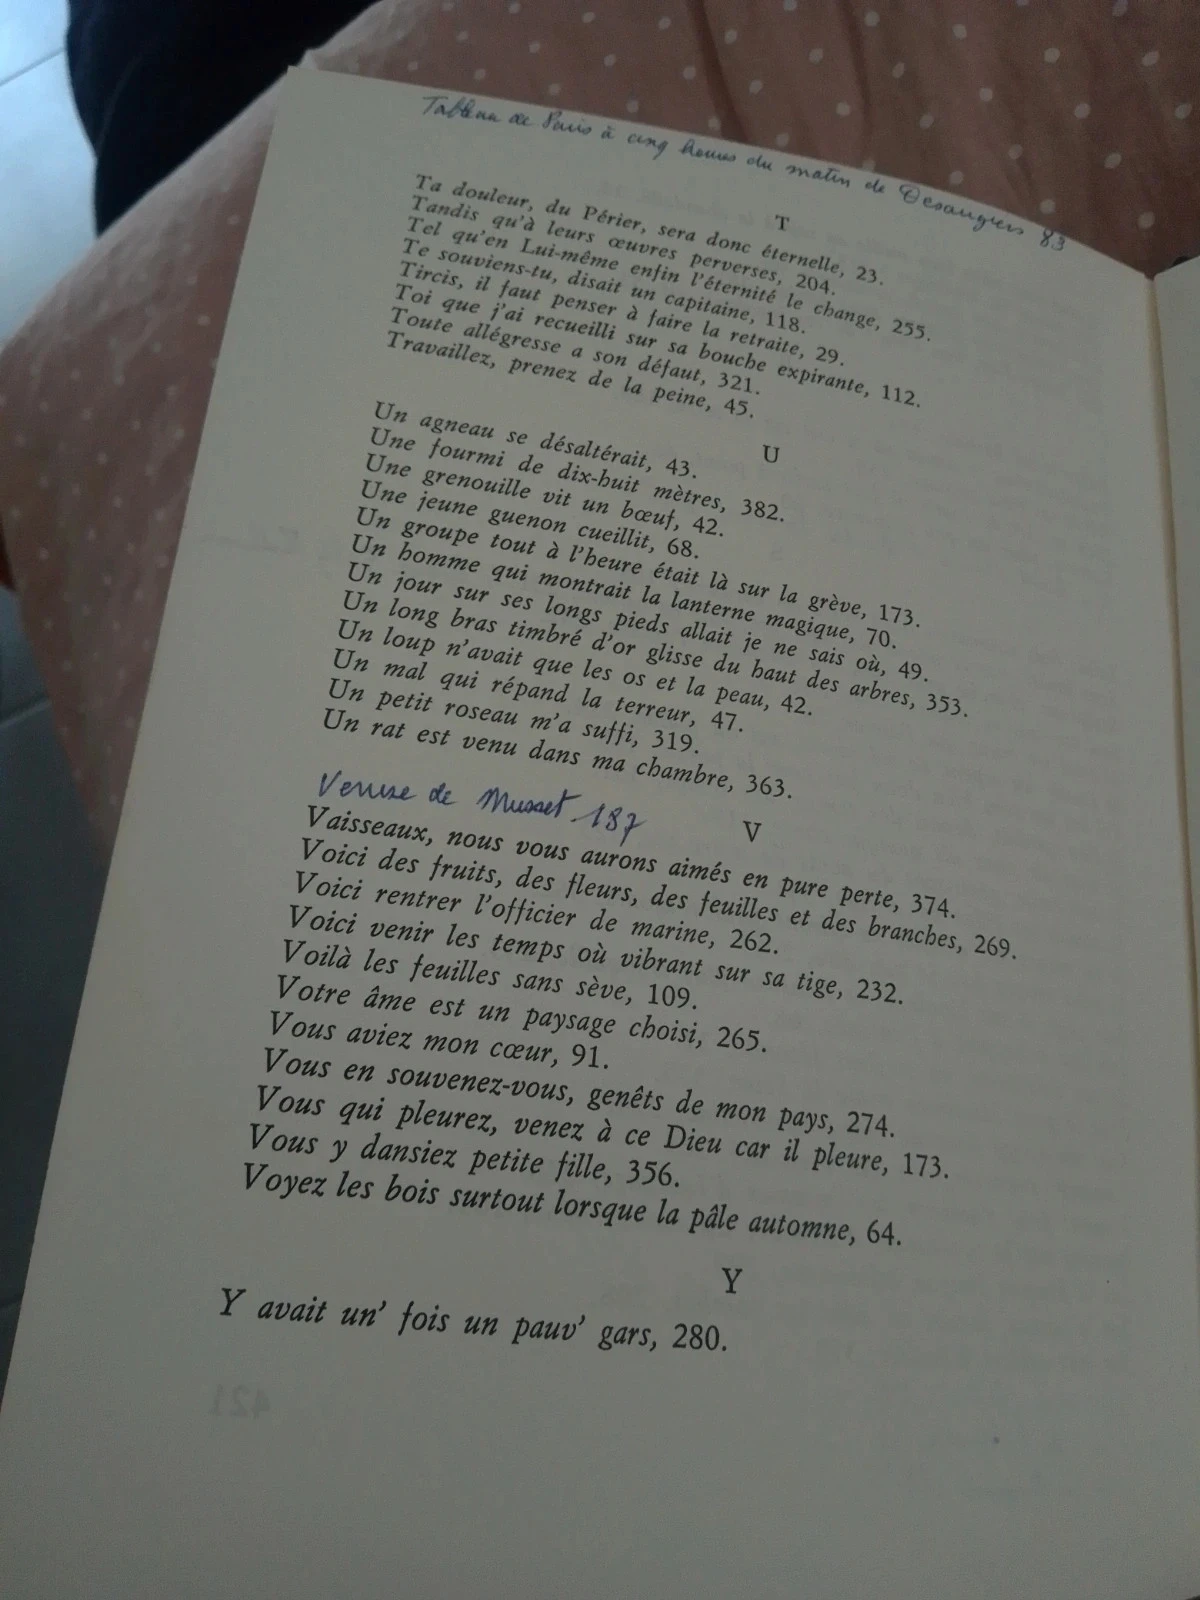 Tableau de Paris à cinq heures du matin de Desaugiers 83
T
Ta douleur, du Périer, sera donc éternelle, 23.
Tandis qu'à leurs œuvres perverses, 204.
Tel qu'en Lui-même enfin l'éternité le change, 255.
Te souviens-tu, disait un capitaine, 118.
Tircis, il faut penser à faire la retraite, 29.
Toi que j'ai recueilli sur sa bouche expirante, 112.
Toute allégresse a son défaut, 321.
Travaillez, prenez de la peine, 45.
U
Un agneau se désaltérait, 43.
Une fourmi de dix-huit mètres, 382.
Une grenouille vit un bœuf, 42.
Une jeune guenon cueillit, 68.
Un groupe tout à l'heure était là sur la grève, 173.
Un homme qui montrait la lanterne magique, 70.
Un jour sur ses longs pieds allait je ne sais où, 49.
Un long bras timbré d'or glisse du haut des arbres, 353.
Un loup n'avait que les os et la peau, 42.
Un mal qui répand la terreur, 47.
Un petit roseau m'a suffi, 319.
Un rat est venu dans ma chambre, 363.
Venise de Musset 187
V
Vaisseaux, nous vous aurons aimés en pure perte, 374.
Voici des fruits, des fleurs, des feuilles et des branches, 269.
Voici rentrer l'officier de marine, 262.
Voici venir les temps où vibrant sur sa tige, 232.
Voilà les feuilles sans sève, 109.
Votre âme est un paysage choisi, 265.
Vous aviez mon cœur, 91.
Vous en souvenez-vous, genêts de mon pays, 274.
Vous qui pleurez, venez à ce Dieu car il pleure, 173.
Vous y dansiez petite fille, 356.
Voyez les bois surtout lorsque la pâle automne, 64.
Y
Y avait un' fois un pauv' gars, 280.